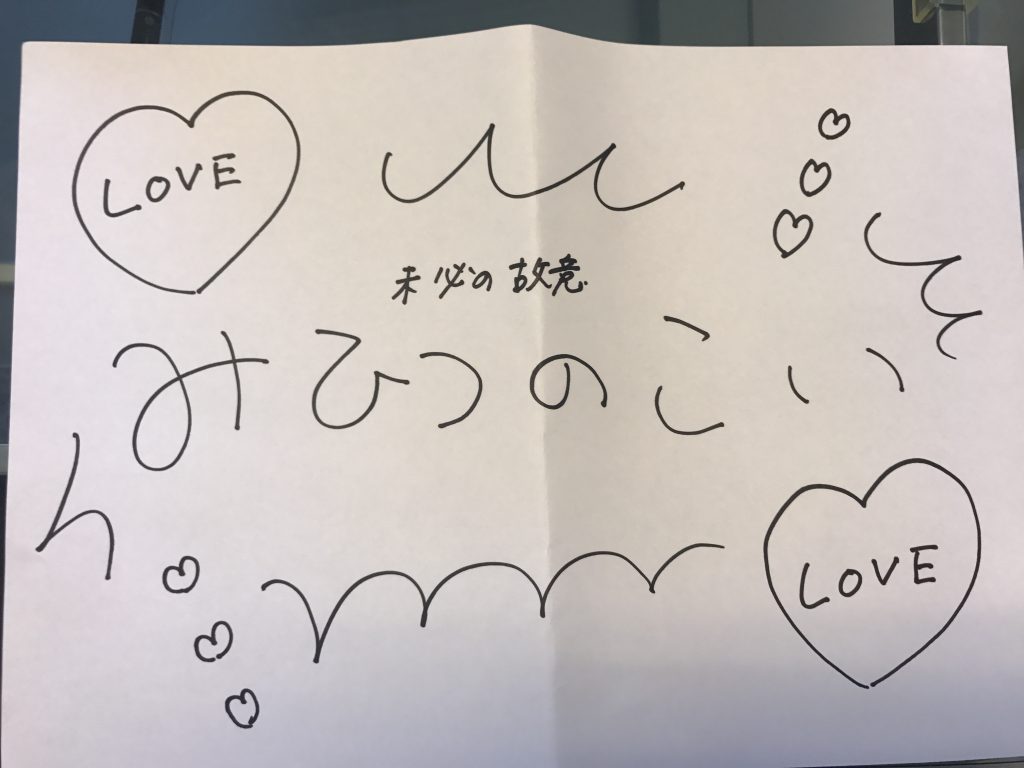 LOVE
未必の故意
みひつのこい
LOVE